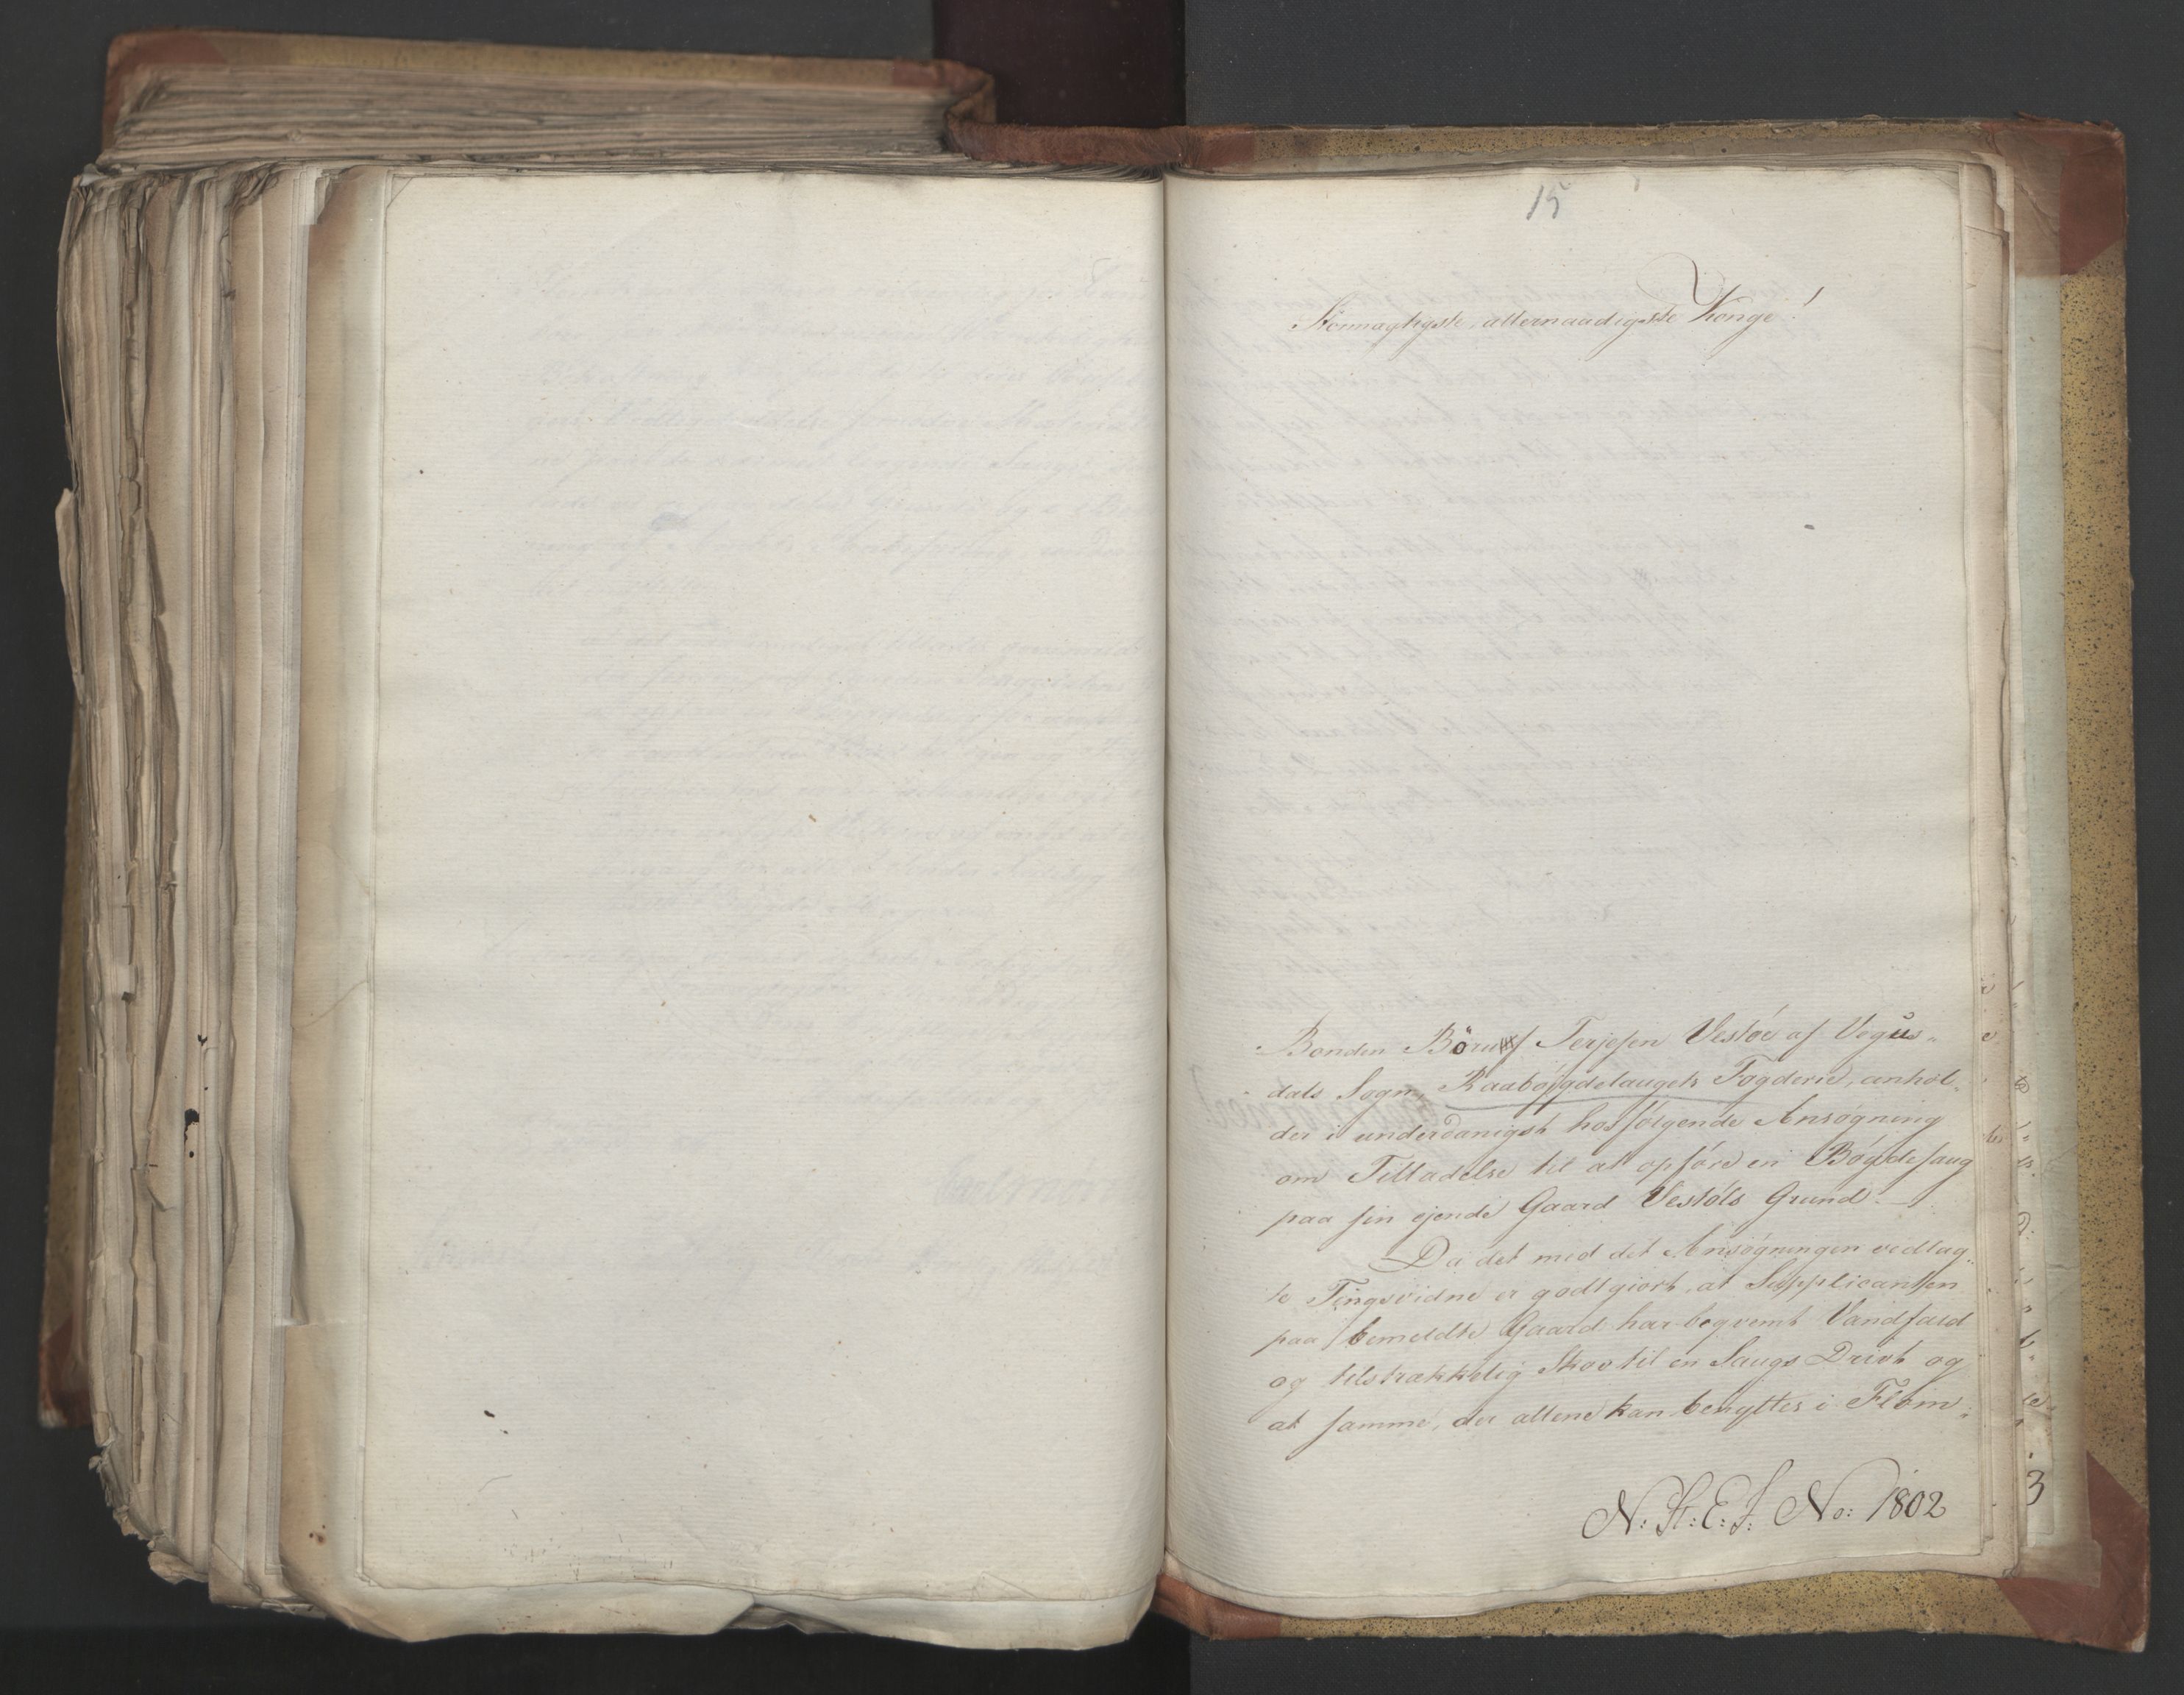 15
Stormægtigste, allernaadigste Konge!
Bonden Börulf Terjesen Vestøl af Vegus„
dals Sogn, Raabøjgdelaugets Fogderie, anhol„
der i underdanigst hosfølgende Ansøgning
om Tilladelse til at opføre en Bøjgdesaug
paa sin ejende Gaard Vestøls Grund.
Da det med det Ansøgningen vedlag„
te Tingsvidne er godtgiort, at Supplicanten
paa bemeldte Gaard har beqvemt Vandfald
og tilstrækkelig Skov til en Saugs Drivt og
at samme, der allene kan benyttes i Flom„
N: St: E: J: No: 1802
3